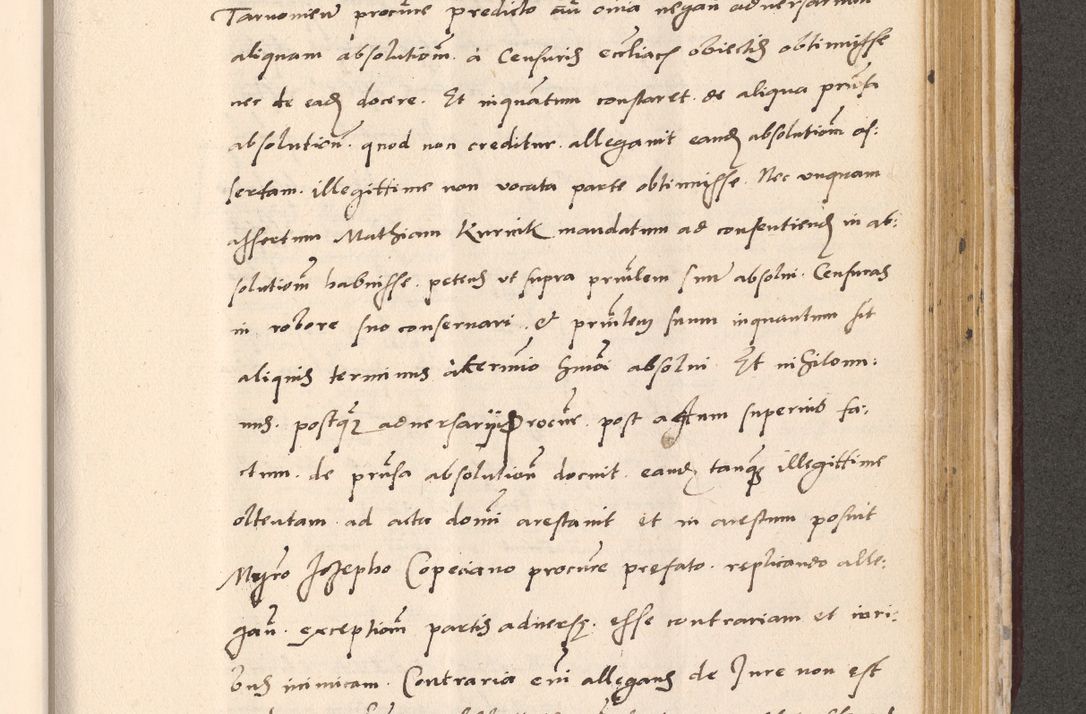 Tarvonien procure predicto cum omnia negan adversarium
aliquam absolutiom. à Censuris eccliacs obiectis obtinuisse
nec de ead docere. Et inquantum constaret. de aliqua prnsa
absolution. quod non creditur. allegavit eand absolutiom as:
sertam. illegittime non vocata parte obtinuisse. Nec unquam
assertum Mathiam Kuricik mandatum ad consentiend in ab:
solutiom habuisse. petens ut supra prinlem suu absolvi. Censuras
in robore suo conservari. Et prinlem suum inquantum sit
aliquis terminus à termio hmoi absolvi. Et nihilomi:
nus. postq adversarij procur. post actum superius fa:
ctum. de prnsa absolution docuit. eand tanq illegittime
obtentam. ad acta domi arestavit et in arestum posuit
Mgro Josepho Copeciano procure prefato. replicando alle:
gan. exceptiom partis advers. esse contrariam et iuri:
bus inimicam. Contraria eni allegans de Jure non est